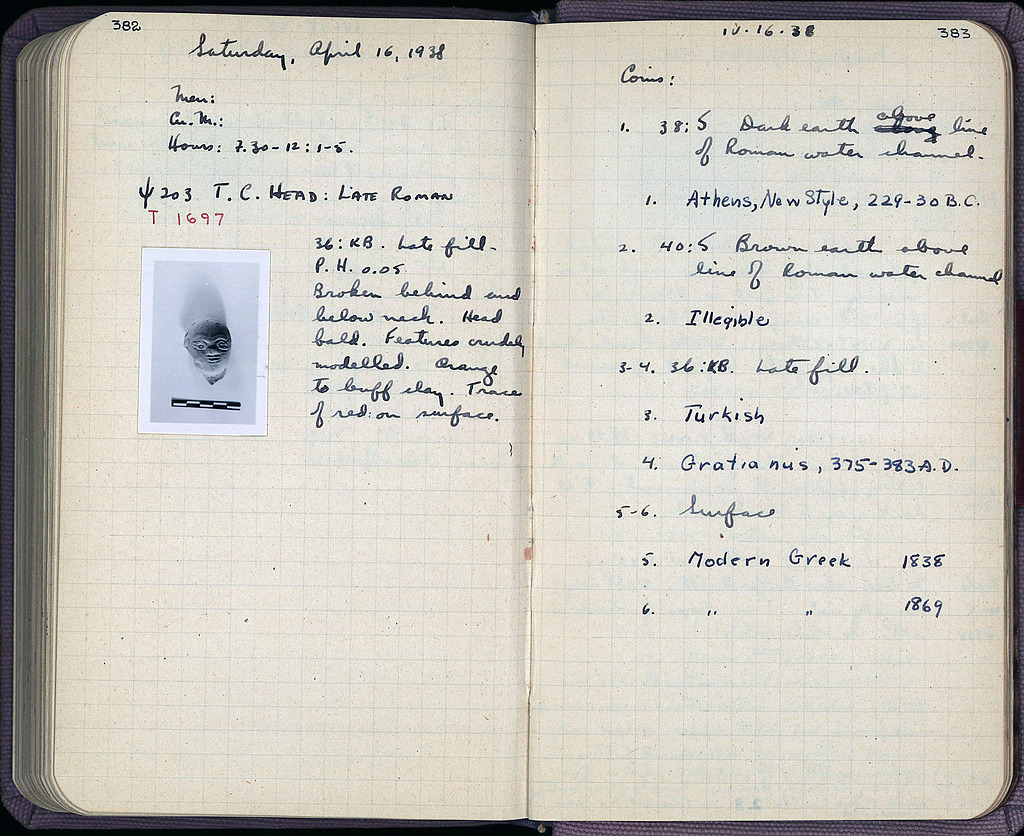 382
Saturday, April 16, 1938
Men:
Cu. M.:
Hours: 7.30-12: 1-5.
Ψ 203 T. C. HEAD: LATE ROMAN
T 1697
36: KB. Late fill.
P. H. 0.05
Broken behind and
below neck. Head
bald. Features crudely
modelled. Orange
to buff clay. Trace
of red: on surface.
383
IV. 16. 38
Coins:
1. 38: S Dark earth above line
of Roman water channel.
1. Athens, New Style, 229-30 B.C.
2. 40: S Brown earth above
line of Roman water channel
2. Illegible
3-4. 36: KB. Late fill.
3. Turkish
4. Gratianus, 375-383 A.D.
5-6. Surface
5. Modern Greek 1838
6. " " 1869